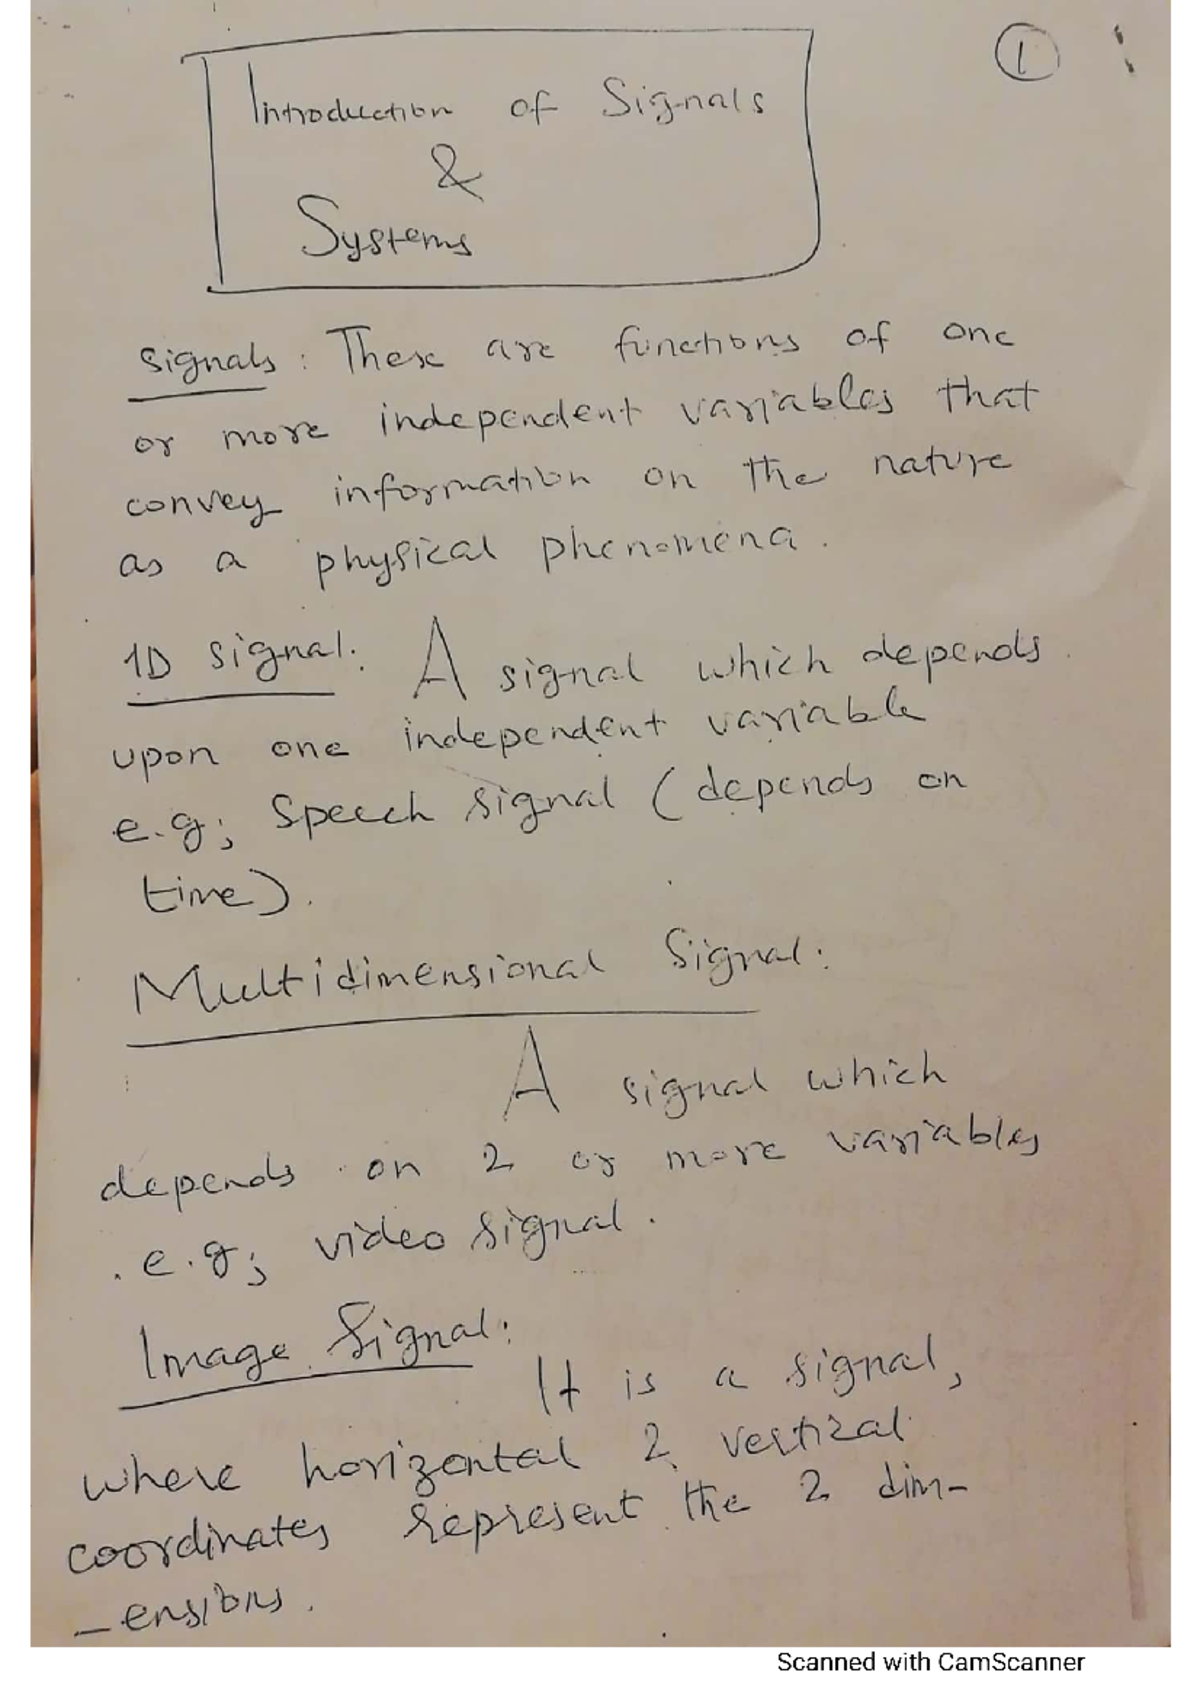 1
Introduction of Signals
&
Systems
Signals: These are functions of one
or more independent variables that
convey information on the nature
as a physical phenomena.
1D signal: A signal which depends
upon one independent variable
e.g; Speech signal (depends on
time).
Multidimensional Signal:
A signal which
depends on 2 or more variables
e.g; video signal.
Image Signal:
It is a signal,
where horizontal & vertical
coordinates represent the 2 dim-
-ensions.
Scanned with CamScanner